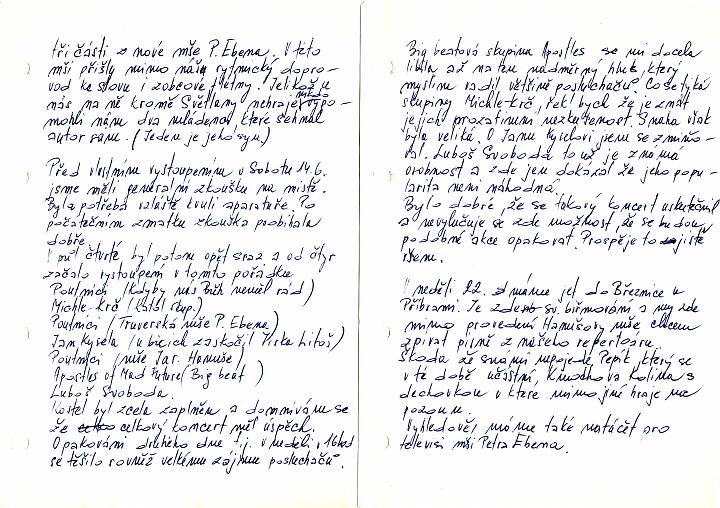 tři části z nové mše P. Ebena. V této
mši přišly mimo náš rytmický dopro-
vod ke slovu i zobcové flétny. Jelikož u
nás na ně kromě Světlany nehraje nikdo vypo-
mohli nám dva mládenci které sehnal
autor sám. (Jeden je jeho syn)
Před vlastním vystoupením v Sobotu 14.6.
jsme měli generální zkoušku na místě.
Byla potřebá zvláště kvůli aparatuře. Po
počátečním zmatku zkouška probíhala
dobře.
čtvrté byl potom opět sraz a od čtyř
začalo vystoupení v tomto pořádku
Poutníci (Kdyby nás Bůh neměl rád)
Michle-Krč (                 skup.)
Poutníci (Truverská mše P. Ebena)
Jan Kysela (u bicích zaskočil Jirka Litoš)
Poutníci (mše Jar. Hanuše)
Apostles of Mad Future (Big beat)
Luboš Svoboda.
Kostel byl zcela zaplněn a domnívám se
že celkový koncert měl úspěch.
Opakování druhého dne t.j. v neděli v 16 hod
se těšilo rovněž velkému zájmu posluchačů.
Big beatová skupina Apostles se mi docela
líbila až na ten nadměrný hluk, který
myslím vadil většině posluchačů. Co se týká
skupiny Michle-Krč, řekl bych že je znát
jejich prozatímní nezkušenost. Snaha však
byla veliká. O Janu Kyselovi jsem se zmiňo-
val. Luboš Svoboda to už je známá
osobnost a zde jen dokázal že jeho popu-
larita není náhodná.
Bylo dobré, že se takový koncert uskutečnil
a nevylučuje se zde možnost, že se budou
podobné akce opakovat. Prospěje to jistě
všem.
V neděli 22. máme jet do Březnice u
Příbrami. Je zde sv. biřmování a my zde
mimo provedení Hanušovy mše chceme
zpívat písně z našeho repertoáru.
Škoda že s námi nepojede Pepík, který se
v té době účastní, Kmochova Kolína s
dechovkou v které mimo jiné hraje na
pozoun.
Výhledově máme také natáčet pro
televisi mši Petra Ebena.